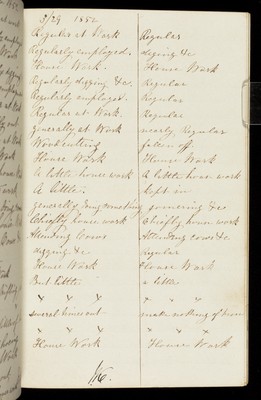 3/29 1852
Regular at Work Regular
Regularly employed. diging &c
House Work. House Work
Regularly digging &c. Regular
Regularly employed. Regular
Regular at Work. Regular
generally at Work nearly Regular
Woodcutting fallen off.
House Work House Work
A little house work A little house work
A little. kept in
generally doing something &c
Chiefly house work Chiefly house work
Attending Cows Attending cows &c.
digging &c Regular
House Work House Work
But little a little
x x x x x x
several times out make nothing of him
x x x x x x
House Work House Work